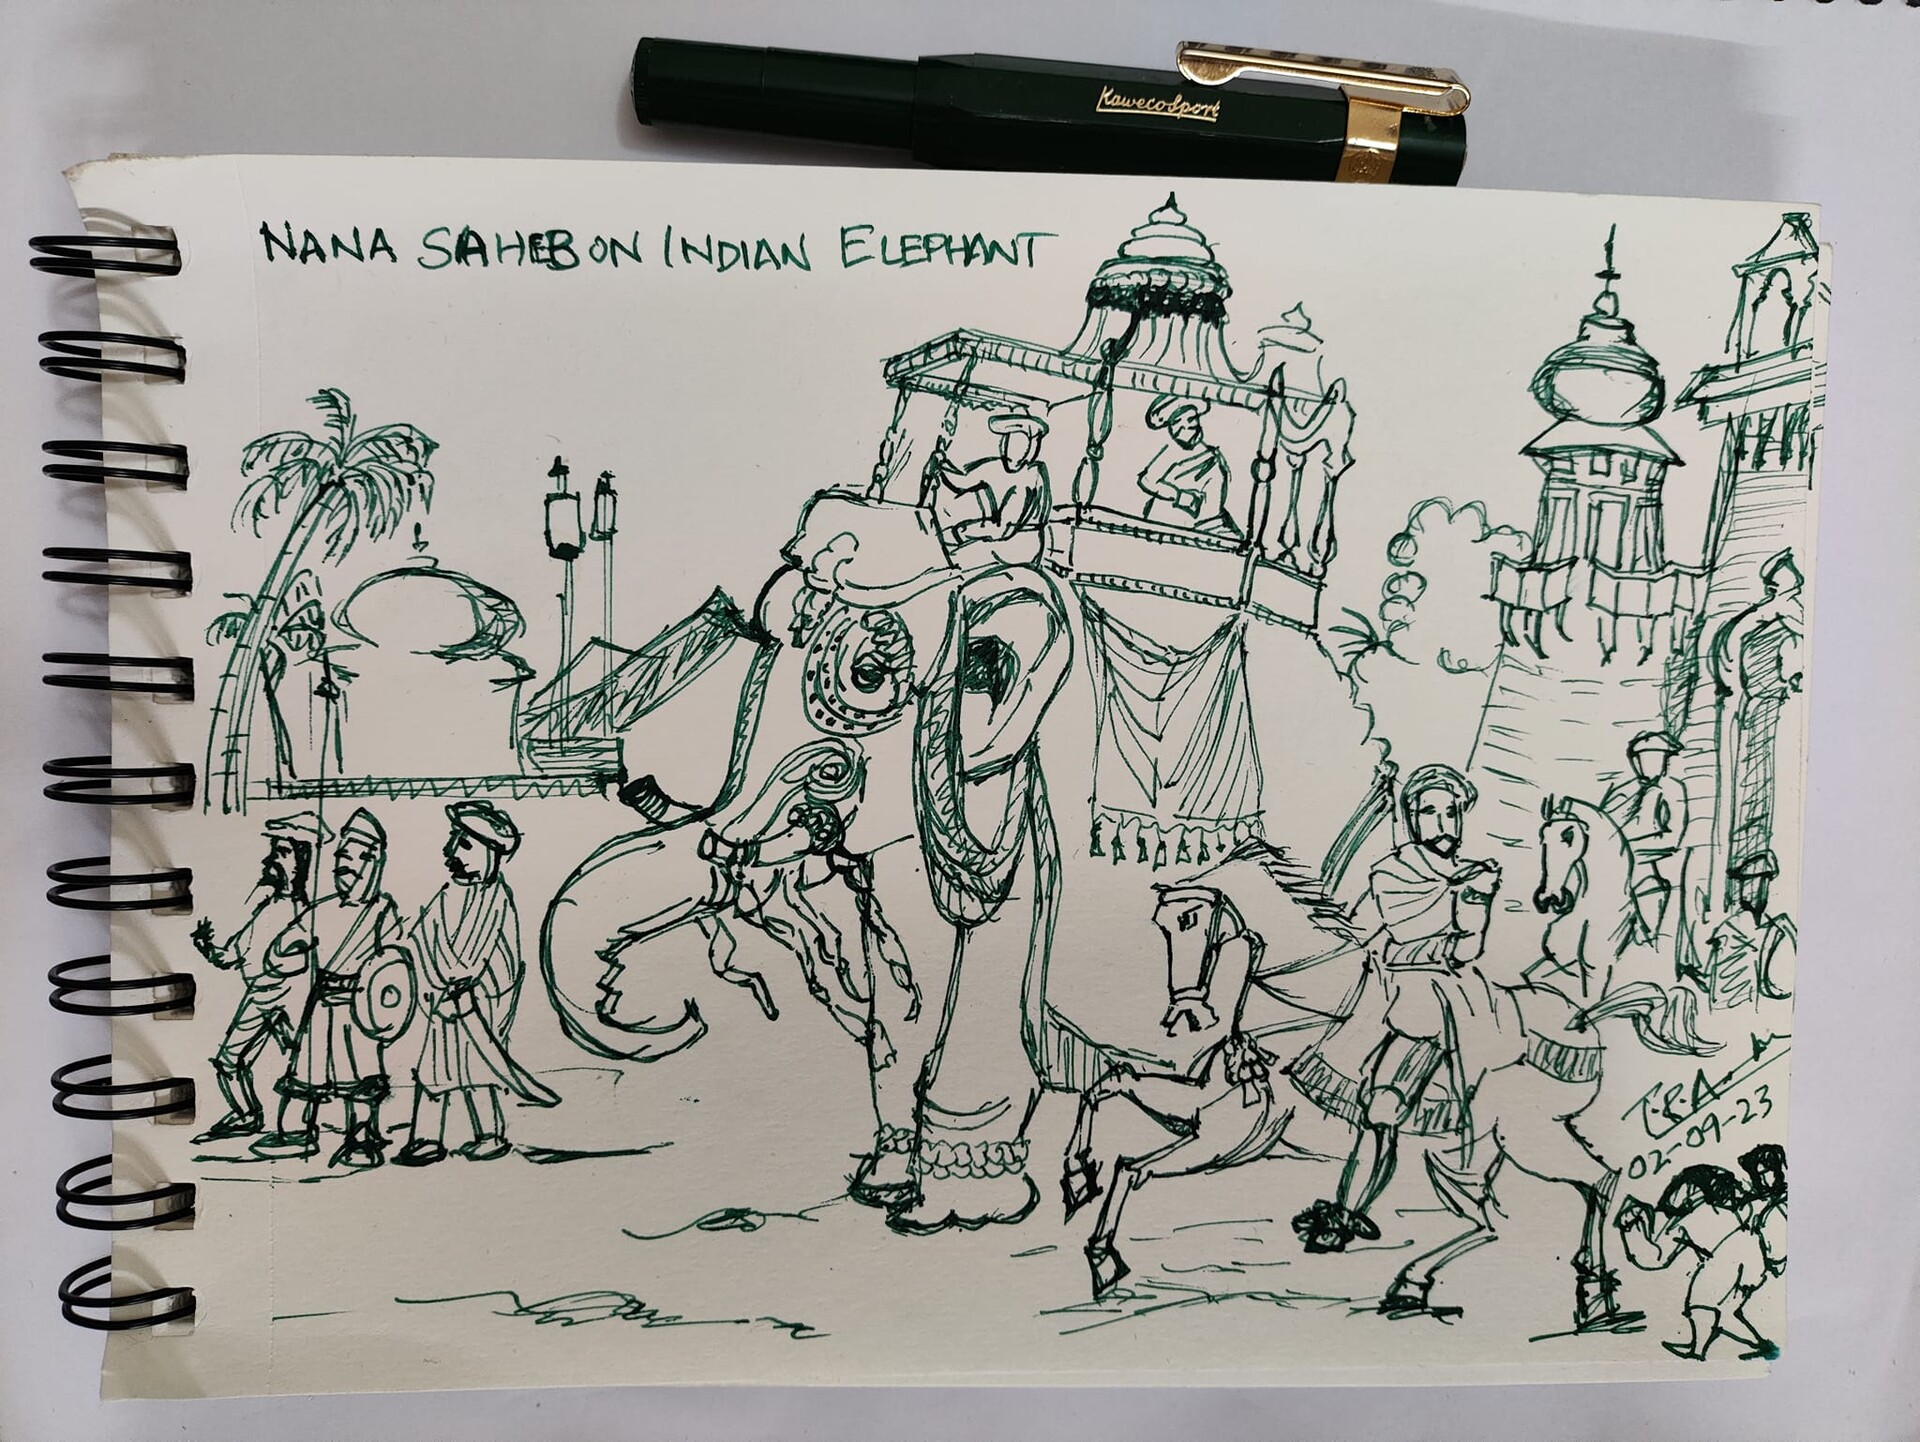 KawecoSport
NANA SAHEB ON INDIAN ELEPHANT
T.R.A
02-09-23